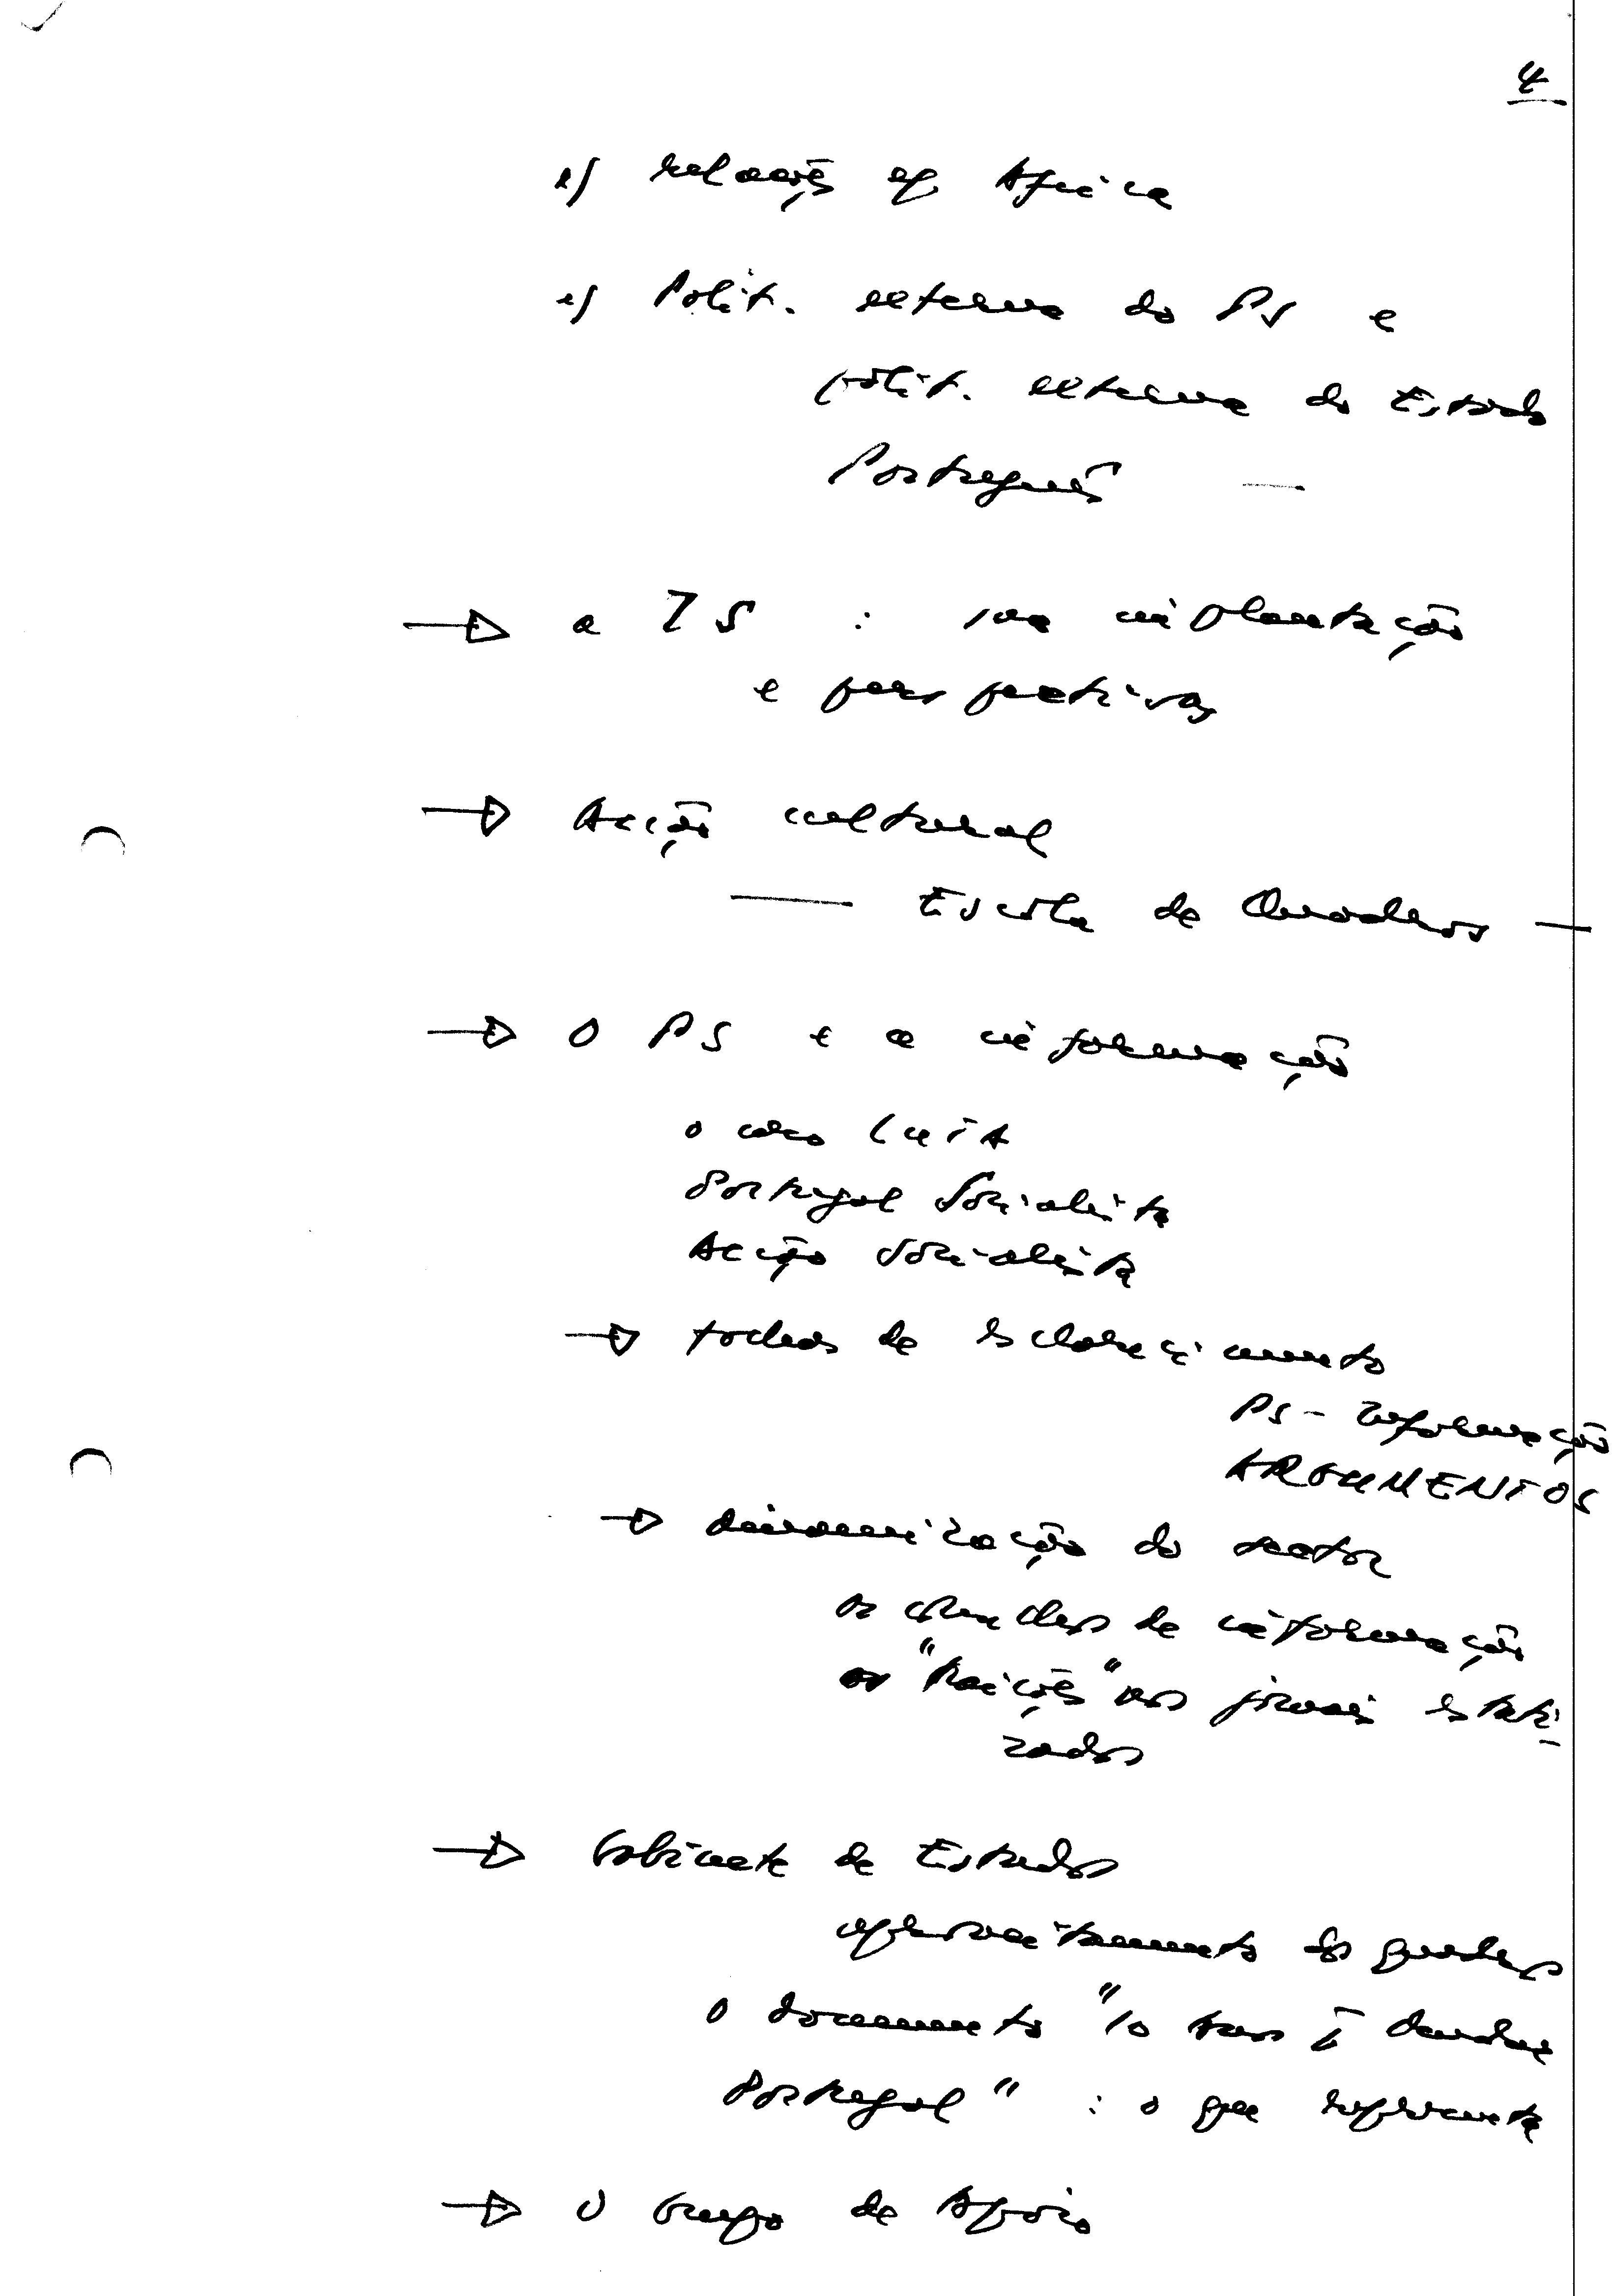 4
e) relações c/ Africa
e) Polit. externa do PS e
polit. externa do Estado
Português —
→ a IS : sua implantação
e perspectivas
→ Acção cultural
— Escola de Quadros —
→ O PS e a informação
o caso Luta
Portugal Socialista
Acção Socialista
→ folhas de esclarecimento
PS - Informação
ARGUMENTOS
→ dinamização do sector
os de informação
as "traições" nos jornais estati-
zados
→ Gabinete de Estudos
aproveitamento dos quadros
o documento "10 anos p/ mudar
Portugal" : o que representa
→ O Grupo de Apoio